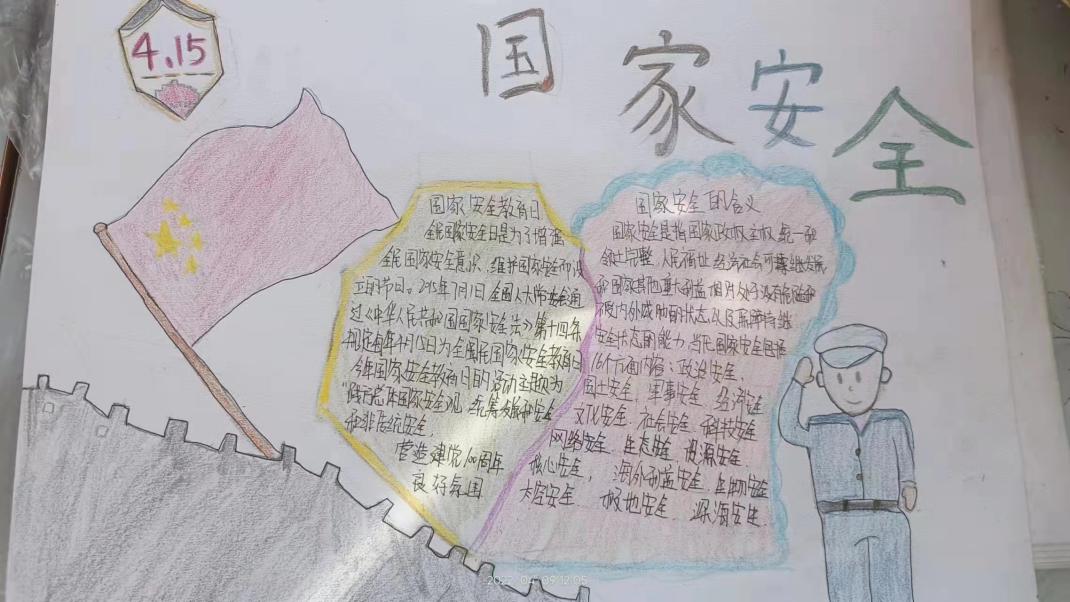 4.15
国家安全
国家安全教育日
全民国家安全日是为了增强
全民国家安全意识，维护国家安全而设
立的节日。2015年7月1日全国人大常委会通
过《中华人民共和国国家安全法》第十四条
规定每年4月15日为全国民国家安全教育日
今年国家安全教育日的活动主题为
“践行总体国家安全观，统筹发展和安全
和非传统安全，
营造建党100周年
良好氛围
国家安全的含义
国家安全是指国家政权、主权、统一和
领土完整、人民福祉、经济社会可持续发展
和国家其他重大利益相对处于没有危险和
不受内外威胁的状态，以及保障持续
安全状态的能力，当代国家安全包括
16个方面内容：政治安全，
国土安全、军事安全、经济安全
文化安全、社会安全、科技安全
网络安全、生态安全、资源安全、
核心安全，海外利益安全、生物安全
太空安全、极地安全、深海安全.
2022 04 09 12:05